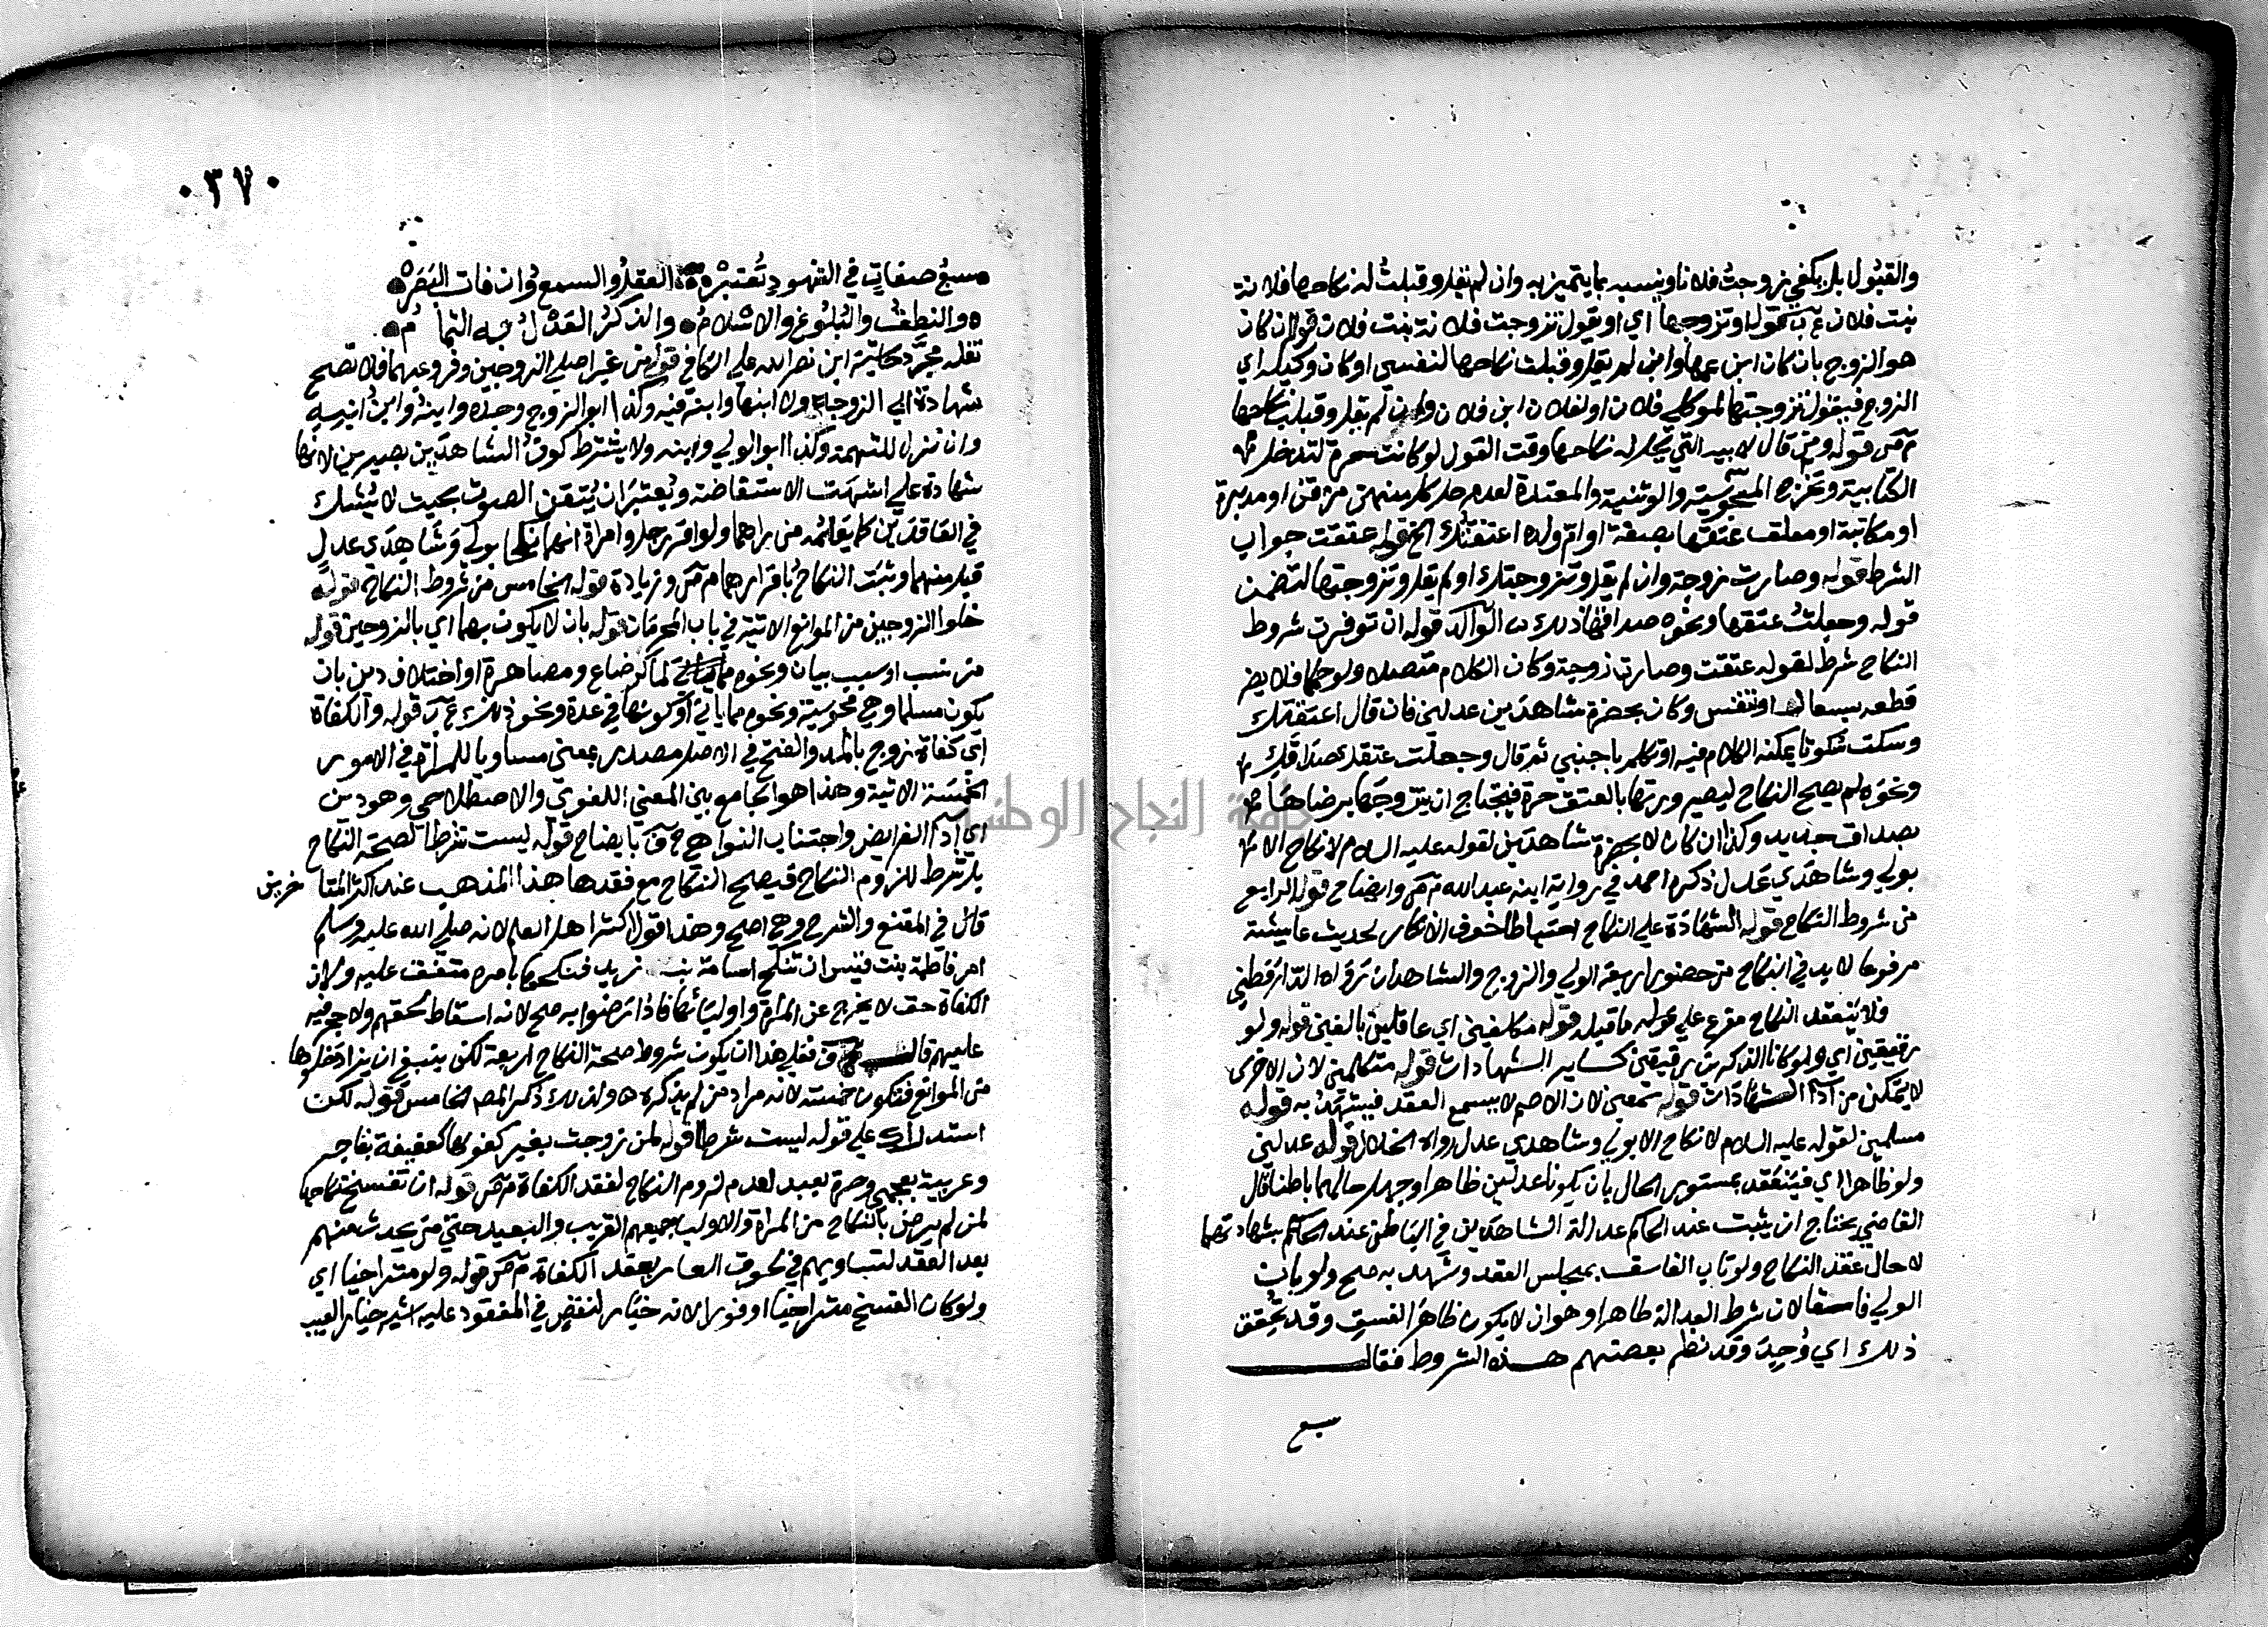 والقبول بل يكفي زوجت فلانا وينسبه بما يتميز به وان لم يقل وقبلت له نكاحها فلانة
بنت فلان قوله او تزوجها اي او يقول تزوجت فلانة بنت فلان قوله ان كان
هو الزوج بان كان ابن عمها وان لم يقل وقبلت نكاحها لنفسي او كان وكيله اي
الزوج فيقول تزوجتها لموكلي فلان او لفلان ابن فلان وان لم يقل وقبلت نكاحها
م ص قوله ومن قال لامته التي يحل له نكاحها وقت القول لو كانت حرة لتدخل
الكتابية وتخرج المجوسية والوثنية والمعتدة لعدم حل كل منهن من قن او مدبرة
او مكاتبة او معلق عتقها بصفة او ام ولده اعتقتك الخ قوله عتقت جواب
الشرط قوله وصارت زوجة وان لم يقل وتزوجتك او لم يقل وتزوجتها لتضمن
قوله وجعلت عتقها ونحوه صداقها ذلك قوله ان توفرت شروط
النكاح شرط لقوله عتقت وصارت زوجة وكان الكلام متصلا ولو حكما فلا يضر
قطعه بسعال او تنفس وكان بحضرة شاهدين عدلين فان قال اعتقتك
وسكت سكوتا يمكنه الكلام فيه او تكلم باجنبي ثم قال وجعلت عتقك صداقك
ونحوه لم يصح النكاح ليصيرورتها بالعتق حرة فيحتاج ان يتزوجها برضاها
بصداق جديد وكذا ان كان لا بحضرة شاهدين لقوله عليه السلام لا نكاح الا
بولي وشاهدي عدل ذكره احمد في رواية ابنه عبد الله م ص وايضاح قوله الرابع
من شروط النكاح قوله الشهادة على النكاح احتياطا لخوف الانكار لحديث عايشة
مرفوعا لا بد في النكاح من حضور اربعة الولي والزوج والشاهدان رواه الدارقطني
فلا ينعقد النكاح مفرع على قوله ما قبله قوله مكلفين اي عاقلين بالغين قوله ولو
رقيقين اي ولو كانا الذكرين رقيقين كساير الشهادات قوله متكلمين لان الاخرس
لا يتمكن من اداء الشهادات قوله سمعين لان الاصم لا يسمع العقد فيشهد به قوله
مسلمين لقوله عليه السلام لا نكاح الا بولي وشاهدي عدل رواه الخلال قوله عدلين
ولو ظاهرا اي فينعقد بمستوري الحال بان يكونا عدلين ظاهرا وجهل حالهما باطنا قال
القاضي يحتاج ان يثبت عند الحاكم عدالة الشاهدين في الباطن عند الحاكم بشهادتهما
لا حال عقد النكاح ولو تاب الفاسق بمجلس العقد وشهد به صح ولو بان
الولي فاسقا لان شرط العدالة ظاهرا وهو ان لا يكون ظاهر الفسق وقد تحقق
ذلك اي وجد وقد نظم بعضهم هذه الشروط فقال
سبع
٠٣٧٠
سبع صفات في الشهود تعتبر العقل والسمع وان فات البصر
والنطق والبلوغ والاسلام والذكر العدل به التمام
نقله مجرد حاشية ابن نصر الله على الكافي قوله من غير اصلي الزوجين وفروعهما فلا تصح
شهادة ابي الزوجة ولا ابنها وابنه فيه وكذا ابو الزوج وجده وابنه وابن ابنه
وان نزل للتهمة وكذا ابو الولي وابنه ولا يشترط كون الشاهدين بصيرين لانها
شهادة على اشبهت الاستفاضة ويعتبر ان يتيقن الصوت بحيث لا يشك
في العاقدين كما يعلمه من يراهما ولو اقر رجل وامراة انهما نكحا بولي وشاهدي عدل
قبل منهما وثبت النكاح باقرارهما م ص وزيادة قوله الخامس من شروط النكاح قوله
خلوا الزوجين من الموانع الاتية في باب المحرمات قوله بان لا يكون بهما اي بالزوجين قوله
من نسب او سبب بيان ونحوه كرضاع ومصاهرة او اختلاف دين بان
يكون مسلما وهي مجوسية ونحوه مما ياتي او كونها في عدة ونحو ذلك قوله والكفاة
اي كفاة زوج بالمد والفتح في الاصل مصدر بمعنى مساويا للمراة في الامور
الخمسة الاتية وهذا هو الجامع بين المعنى اللغوي والاصطلاحي وهو دين
اي اداء الفرايض واجتناب النواهي بايضاح قوله ليست شرطا لصحة النكاح
بل شرط للزوم النكاح فيصح النكاح مع فقدها هذا المذهب عند اكثر المتاخرين
قال في المقنع والشرح وهي اصح وهذا قول اكثر اهل العلم لانه صلى الله عليه وسلم
امر فاطمة بنت قيس ان تنكح اسامة بن زيد فنكحها بامره متفق عليه ولان
الكفاة حق لا يخرج عن المراة واوليائها فاذا رضوا به صح لانه اسقاط لحقهم ولا حجر فيه
عليهم قال فعلى هذا ان يكون شروط صحة النكاح اربعة لكن ينبغي ان يزاد خلوها
من الموانع فتكون خمسة لانه مراد من لم يذكره ولذلك ذكر المص الخامس قوله لكن
استدراك على قوله ليست شرطا قوله لمن زوجت بغير كفوها كعفيفة بفاجر
وعربية بعجمي وحرة بعبد لعدم لزوم النكاح لفقد الكفاة م ص قوله ان تفسخ نكاحها
لمن لم يرض بالنكاح من المراة والاولياء جميعهم القريب والبعيد حتى من يحدث منهم
بعد العقد لتساويهم في لحوق العار بفقد الكفاة م ص قوله ولو متراخيا اي
ولو كان الفسخ متراخيا او فورا لانه خيار لنقص في المعقود عليه اشبه خيار العيب